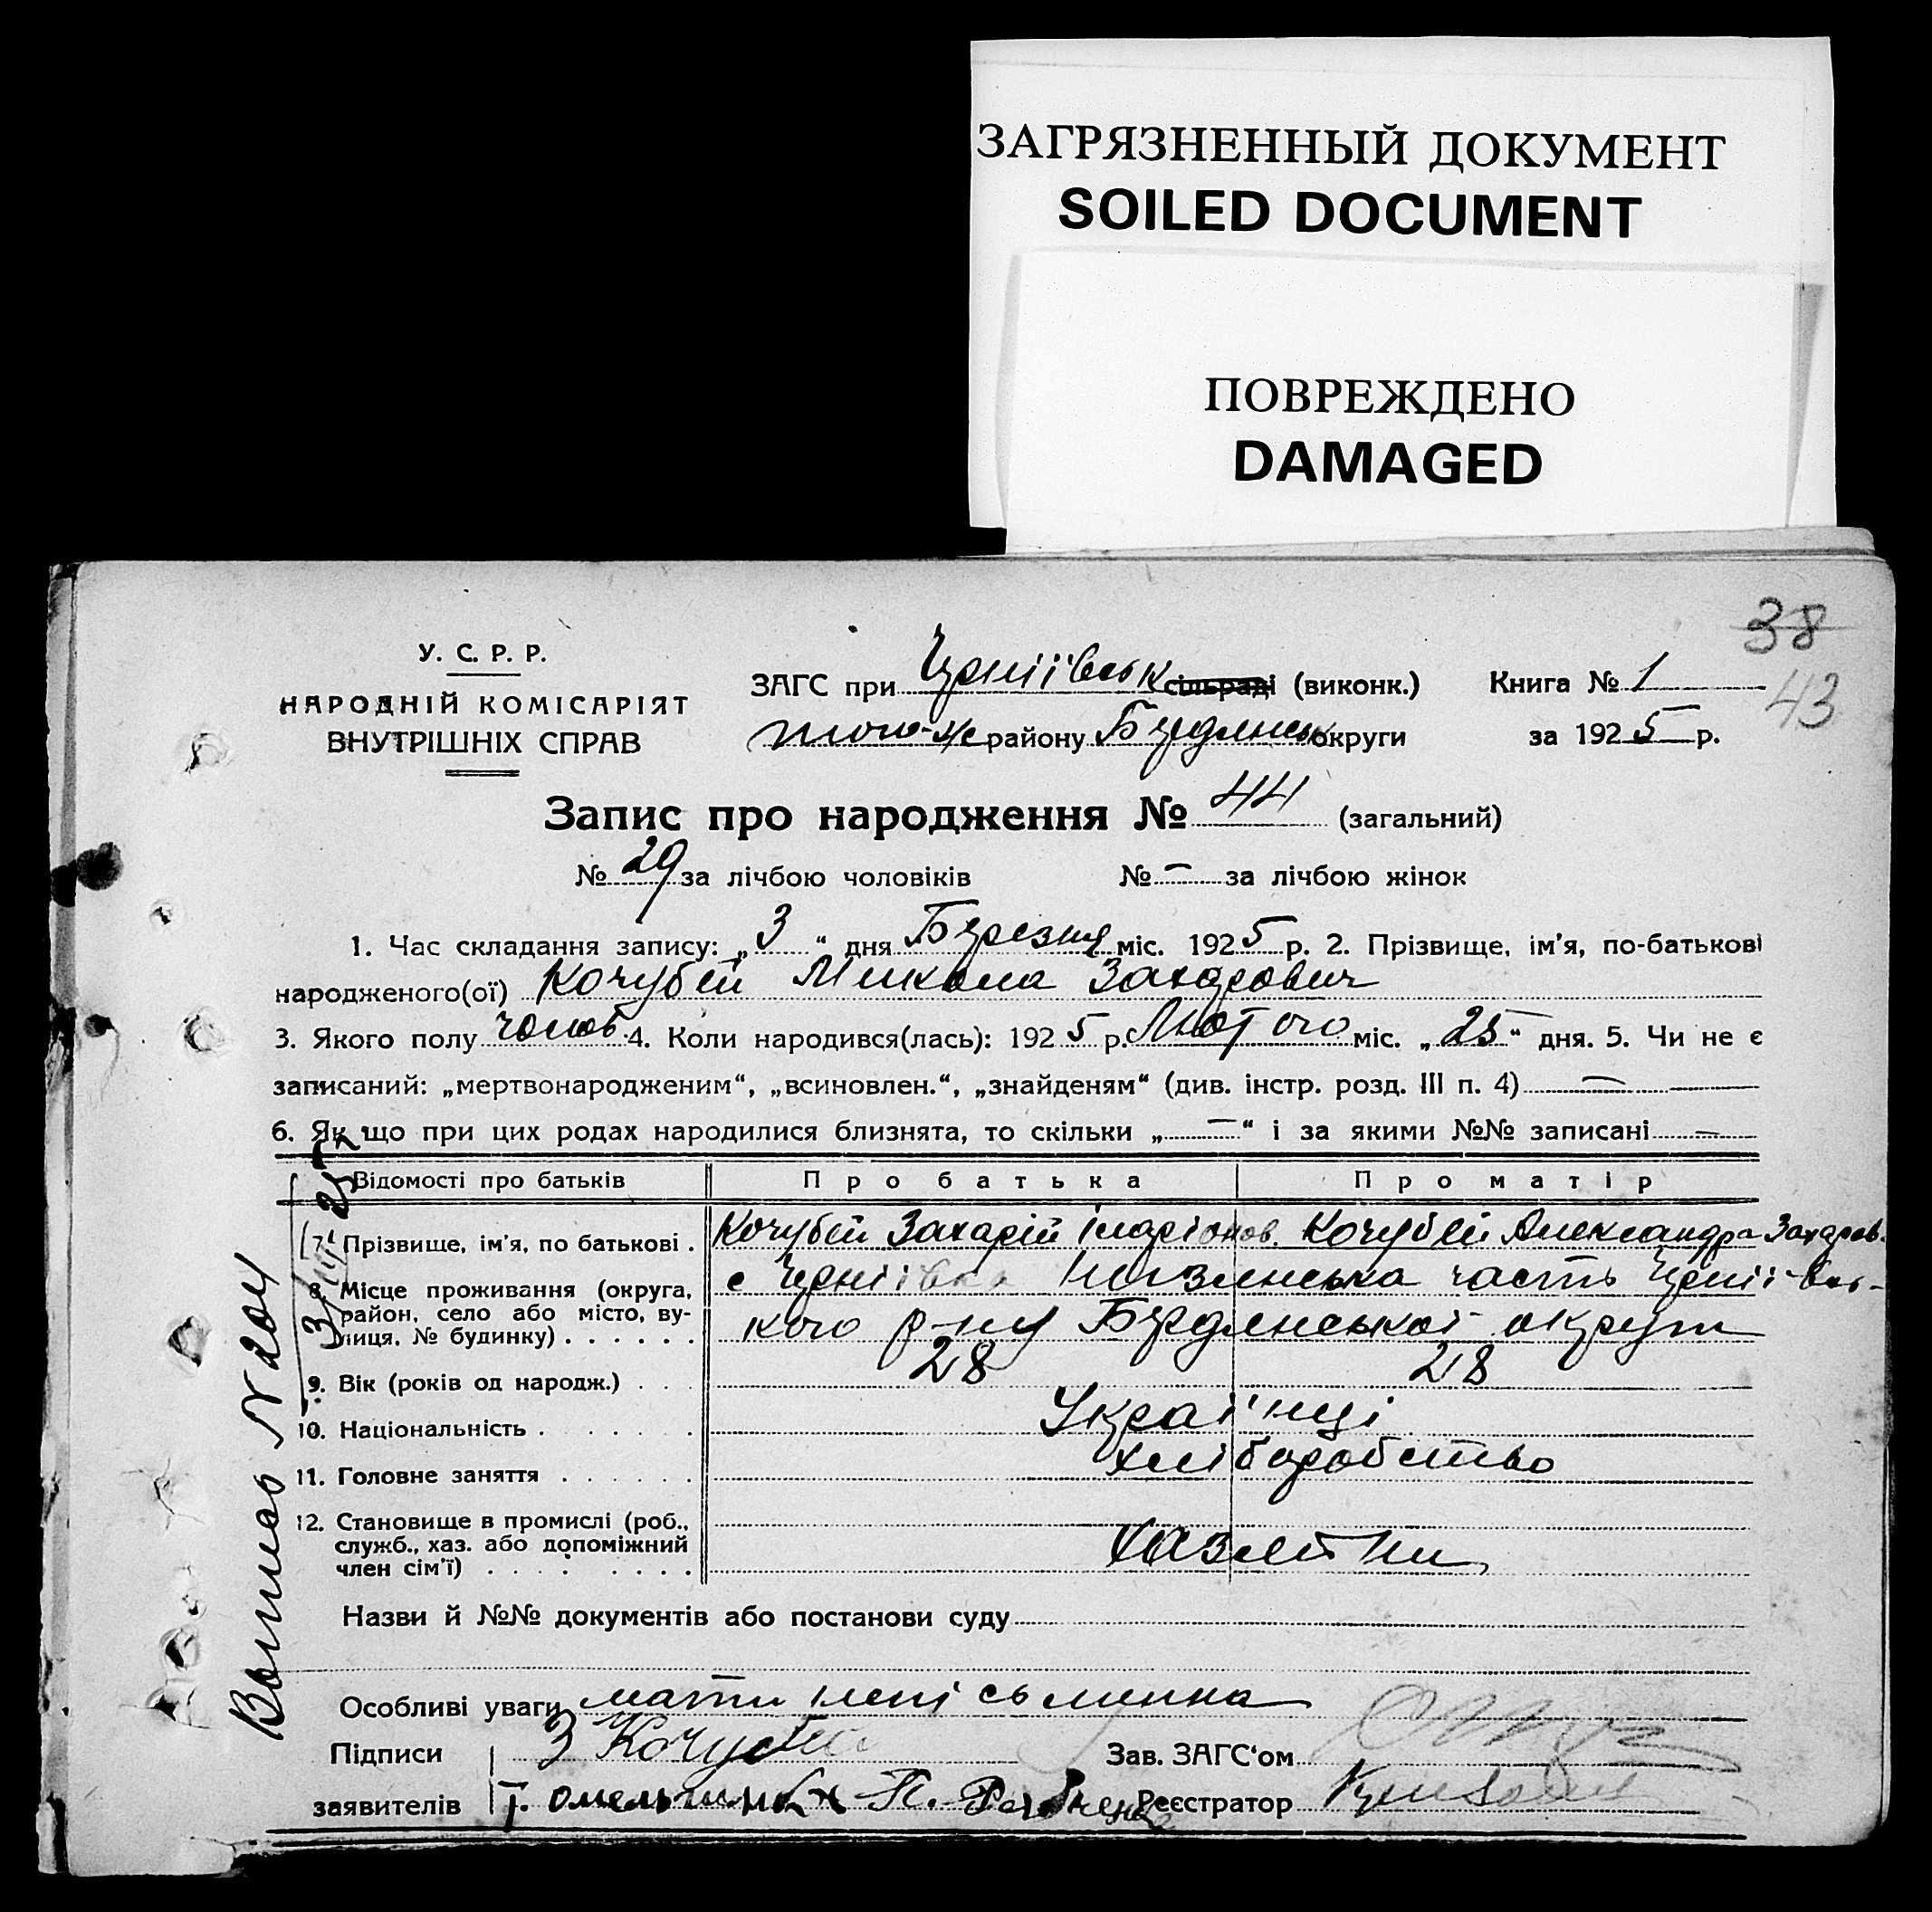 ЗАГРЯЗНЕННЫЙ ДОКУМЕНТ
SOILED DOCUMENT
ПОВРЕЖДЕНО
DAMAGED
38
43
У. С. Р. Р.
НАРОДНІЙ КОМІСАРІЯТ
ВНУТРІШНІХ СПРАВ
ЗАГС при Черніївськ сільраді (виконк.) Книга № 1
того-ж району Бердянськ округи за 1925 р.
Запис про народження № 44 (загальний)
№ 29 за лічбою чоловіків № — за лічбою жінок
1. Час складання запису: „3“ дня Березня міс. 1925 р. 2. Прізвище, ім'я, по-батькові
народженого(ої) Кочубей Микола Захарович
3. Якого полу чолов. 4. Коли народився(лась): 1925 р. Лютого міс. „25“ дня. 5. Чи не є
записаний: „мертвонародженим“, „всиновлен.“, „знайденям“ (див. інстр. розд. III п. 4) —
6. Якщо при цих родах народилися близнята, то скільки „—“ і за якими №№ записані —
Відомості про батьків Про батька Про матір
7. Прізвище, ім'я, по батькові . Кочубей Захарій Іларіонов. Кочубей Александра Захаров.
8. Місце проживання (округа, район, село або місто, вулиця, № будинку) . . . . . . с Черніівка частъ Черніівсь-
кого р-ну Бердянської округи
9. Вік (років од народж.) . . . 28 28
10. Національність . . . . . . Украі'нці
11. Головне заняття . . . . . . хліборобство
12. Становище в промислі (роб., служб., хаз. або допоміжний член сім'ї) . . . . . . . . Хазяїни
Назви й №№ документів або постанови суду
Особливі уваги мати непісьминна
Підписи З Кочубей Зав. ЗАГС‘ом
заявителів Т. П. Реєстратор
N 204